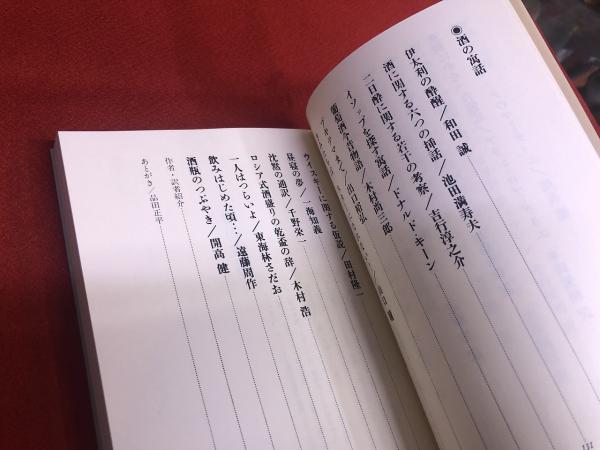 ●酒の寓話
伊太利の酔醒／和田 誠
酒に関する六つの挿話／池田満寿夫
二日酔に関する若干の考察／吉行淳之介
イソップを探す寓話／ドナルド・キーン
葡萄酒今昔物語／木村尚三郎
出口裕弘
ウイスキーに関する仮説／田村隆一
昼寝の夢／一海知義
沈黙の通訳／千野栄一
ロシア式酒盛りの乾盃の辞／木村 浩
一人はつらいよ／東海林さだお
飲みはじめた頃…／遠藤周作
酒瓶のつぶやき／開高 健
作者・訳者紹介
あとがき／品田正平
131